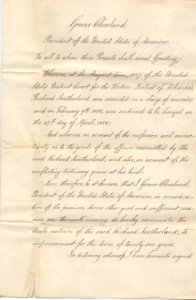 Grover Cleveland,
President of the United States of America,
To all to whom these Presents shall come, Greeting:
Whereas, at the August term, 1887, of the United
States District Court for the Western District of Arkansas,
Richard Sutherland was convicted on a charge of murder
and on February 4th, 1888, was sentenced to be hanged on
the 27th day of April, 1888;
And whereas, on account of the confusion and uncer-
tainty as to the grade of the offense committed by the
said Richard Sutherland, and also, on account of the
conflicting testimony given at his trial:
Now, therefore, be it known, that I, Grover Cleveland,
President of the United States of America, in considera-
tion of the premises, divers other good and sufficient rea-
sons me thereunto moving, do hereby commute the
death sentence of the said Richard Sutherland, to
imprisonment for the term of twenty one years.
In testimony whereof, I have hereunto signed